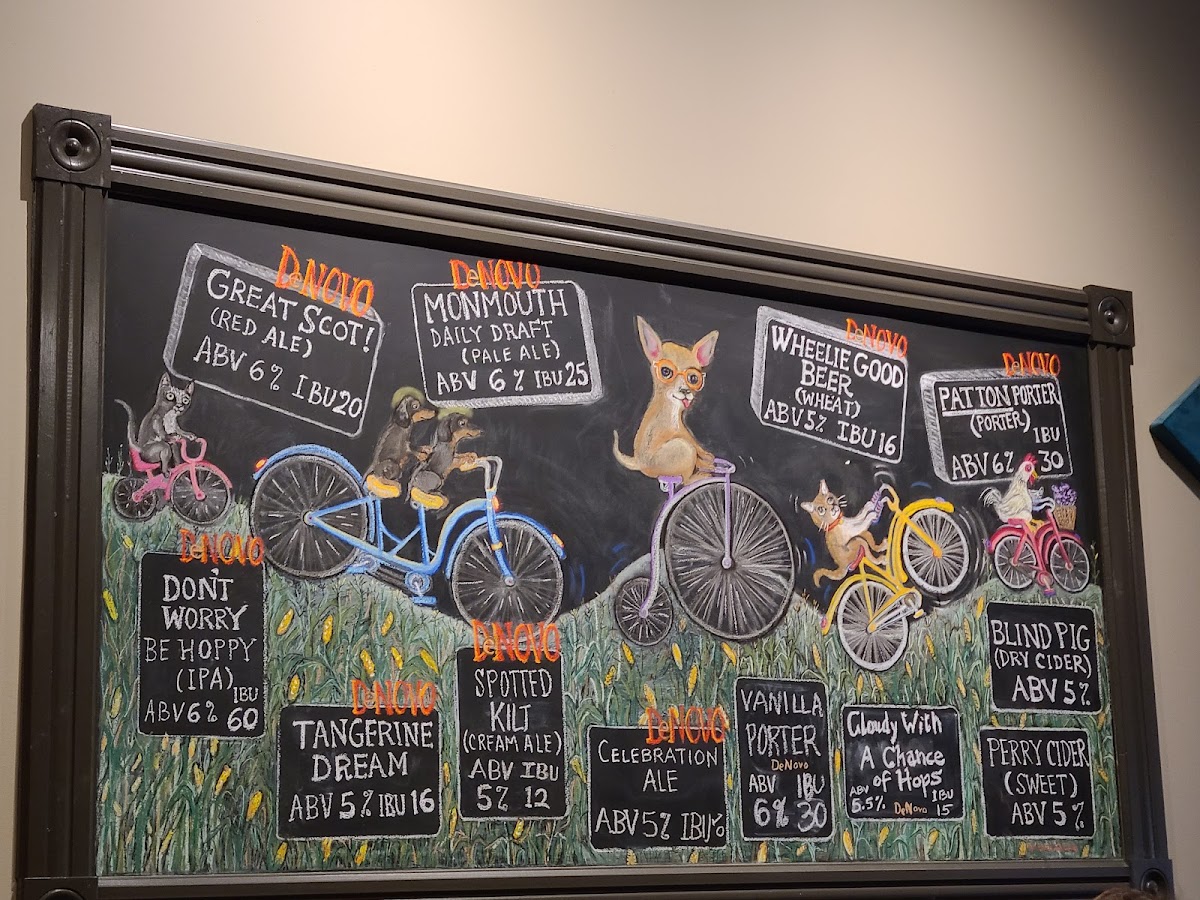 DeNOVO
GREAT SCOT!
(RED ALE)
ABV 6% IBU 20
DeNOVO
MONMOUTH
DAILY DRAFT
(PALE ALE)
ABV 6% IBU 25
DeNOVO
WHEELIE GOOD
BEER
(WHEAT)
ABV 5% IBU 16
DeNOVO
PATTON PORTER
(PORTER)
IBU
ABV 6% 30
DeNOVO
DON'T
WORRY
BE HOPPY
(IPA)
IBU
ABV 6% 60
DeNOVO
TANGERINE
DREAM
ABV 5% IBU 16
DeNOVO
SPOTTED
KILT
(CREAM ALE)
ABV IBU
5% 12
DeNOVO
CELEBRATION
ALE
ABV 5% IBU
VANILLA
PORTER
DeNovo
ABV IBU
6% 30
Cloudy With
A Chance
of Hops
ABV IBU
5.5% DeNovo 15
BLIND PIG
(DRY CIDER)
ABV 5%
PERRY CIDER
(SWEET)
ABV 5%